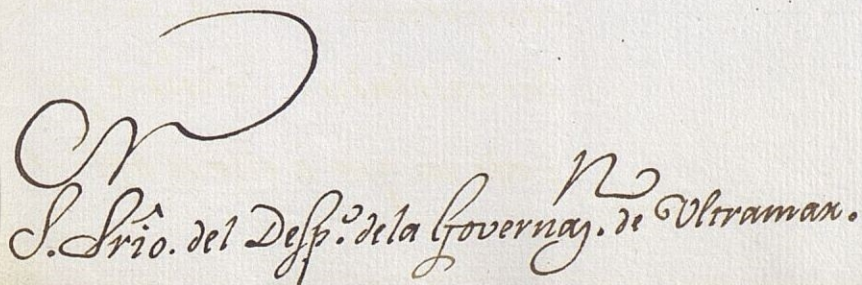 S. Srio. del Desp.º de la Governaz.n de Ultramar.